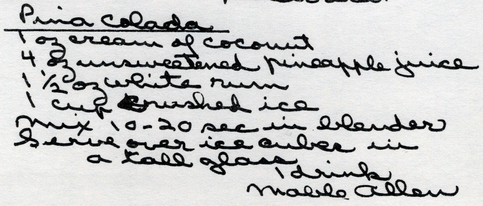 Pina Colada
1 oz cream of coconut
4 oz unsweetened pineapple juice
1 1/2 oz white rum
1 cup crushed ice
Mix 10-20 sec in blender
Serve over ice cubes in
a tall glass
1 drink
Mable Allen